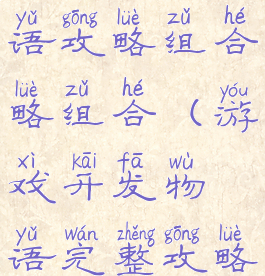 yǔ gōng lüè zǔ hé
语攻略组合
lüè zǔ hé yóu
略组合（游
xì kāi fā wù
戏开发物
yǔ wán zhěng gōng lüè
语完整攻略